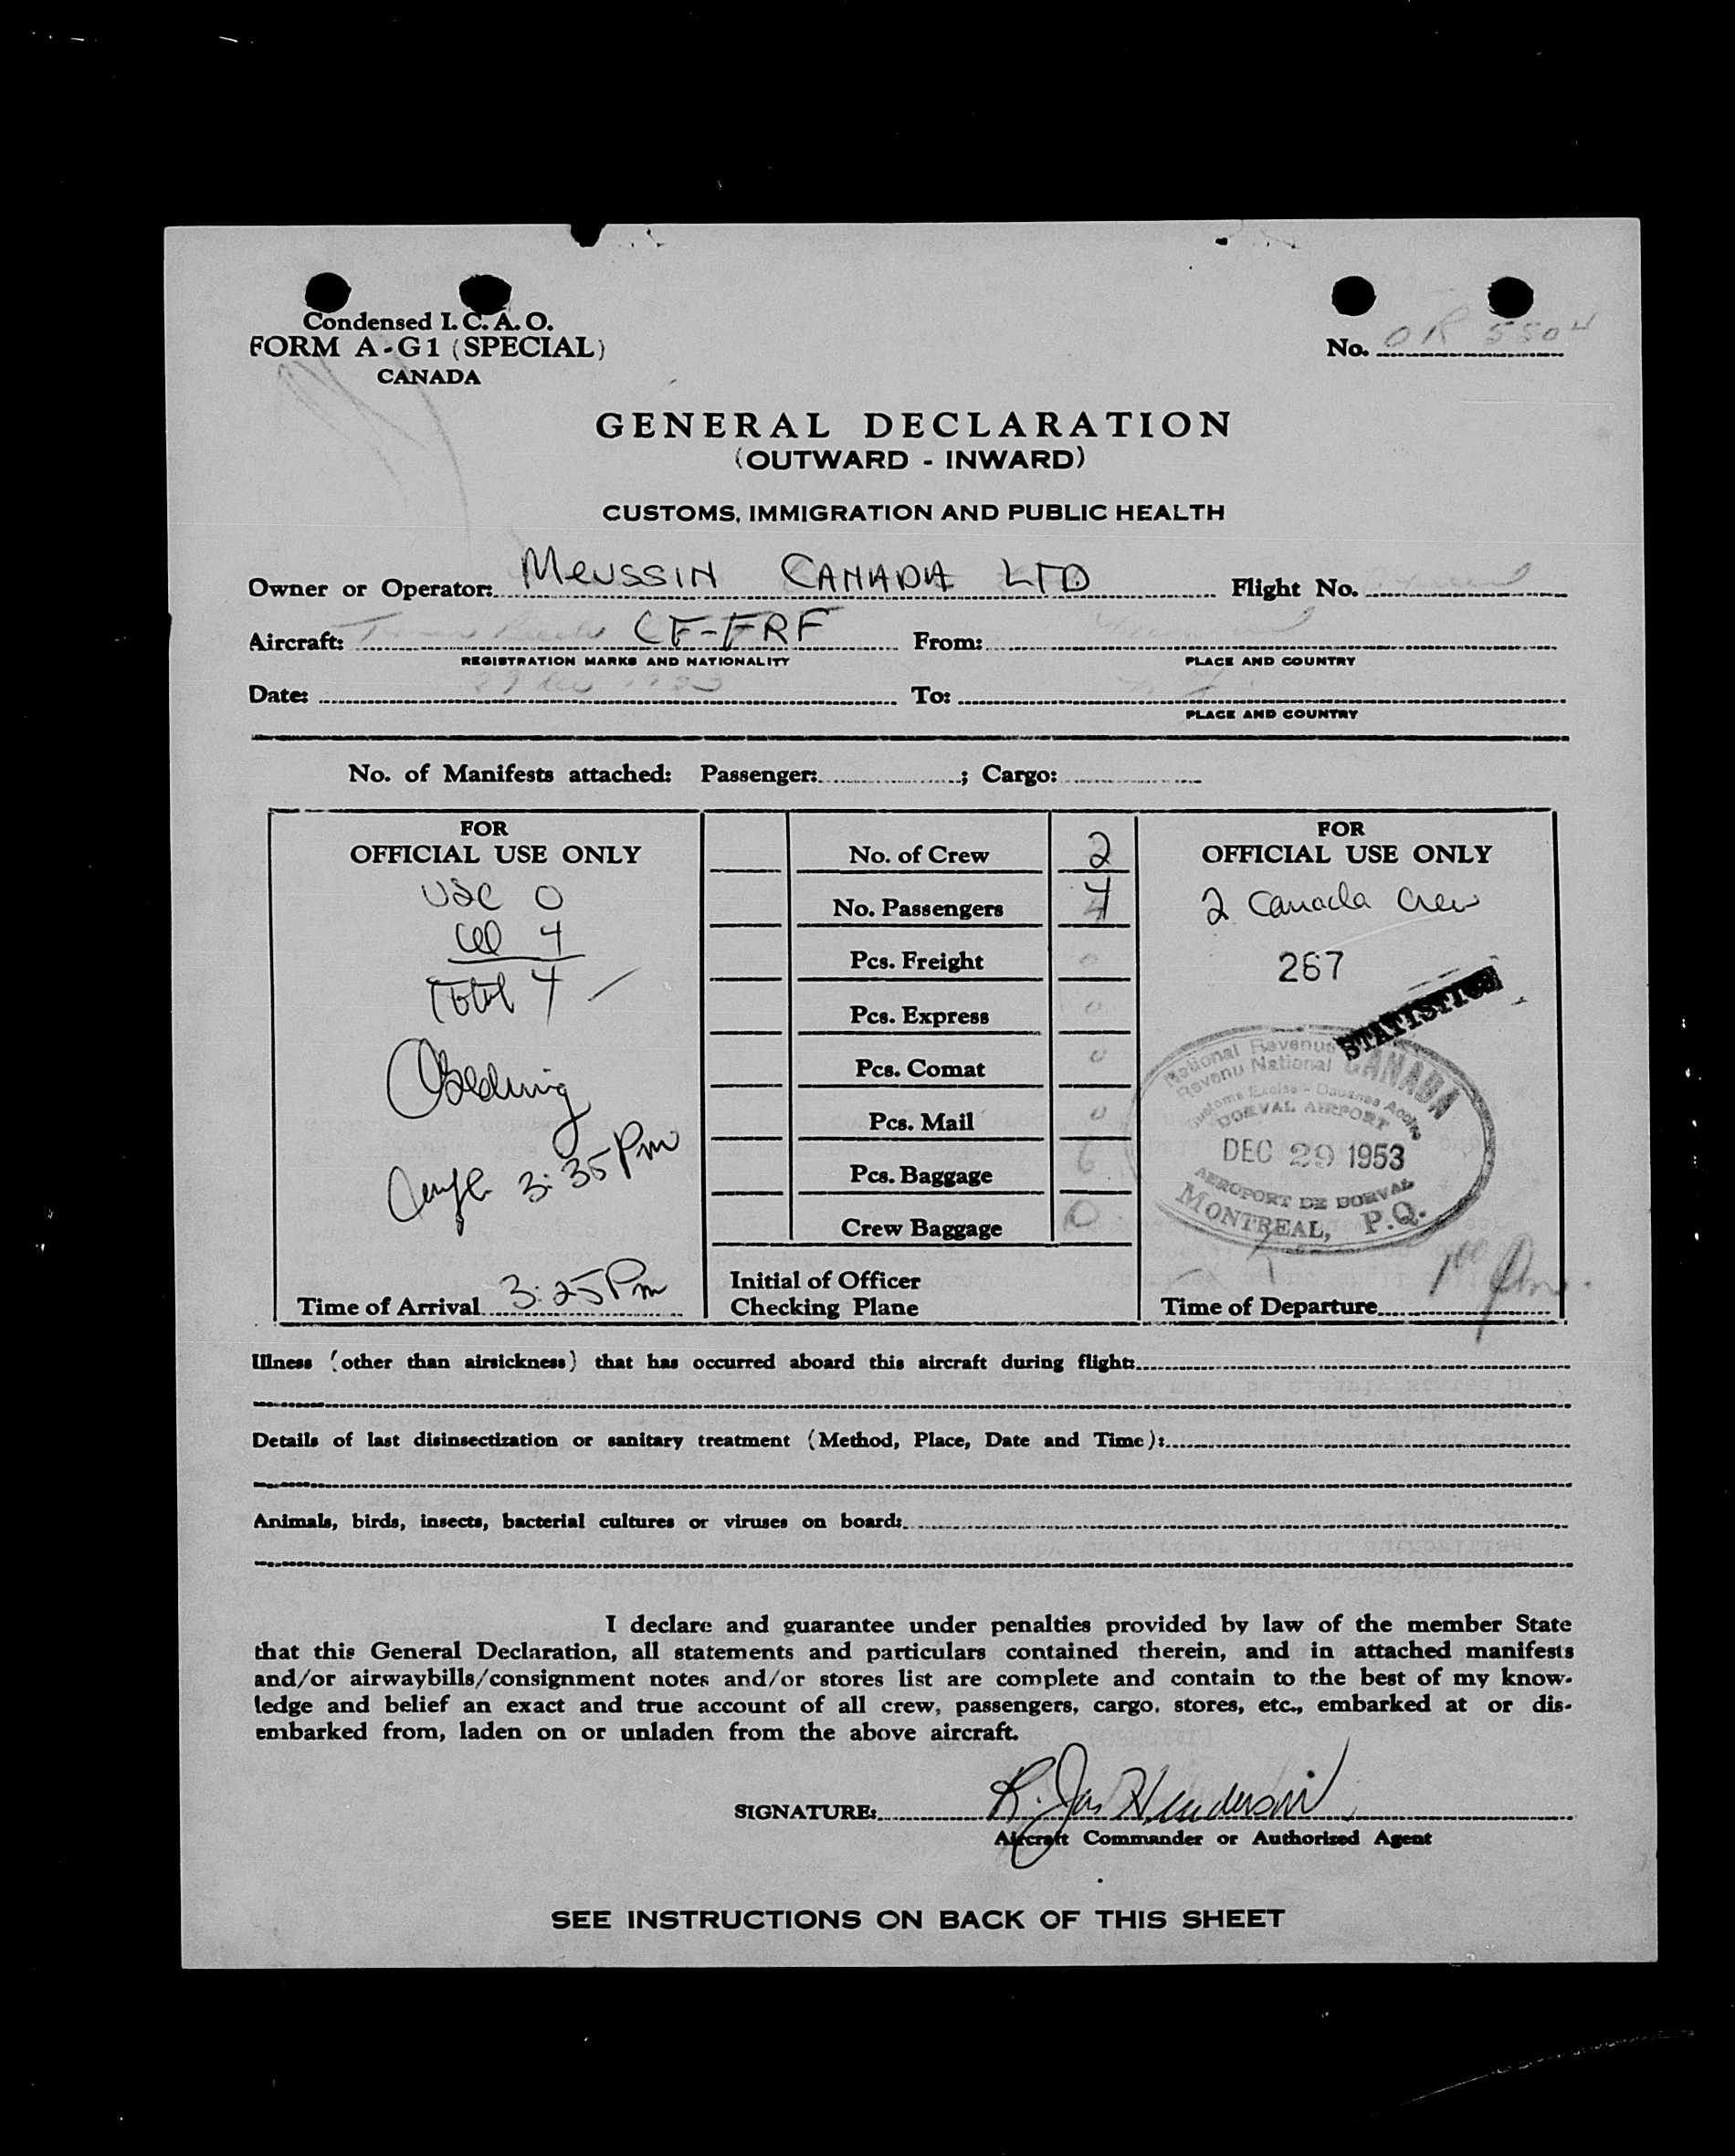 Condensed I. C. A. O.
FORM A-G1 (SPECIAL)
CANADA
No. OR 5504
GENERAL DECLARATION
(OUTWARD - INWARD)
CUSTOMS, IMMIGRATION AND PUBLIC HEALTH
Owner or Operator: MEUSSIN CANADA LTD Flight No.
Aircraft: CF-FRF From:
REGISTRATION MARKS AND NATIONALITY PLACE AND COUNTRY
Date: 29 Dec 1953 To: N.Y.
PLACE AND COUNTRY
No. of Manifests attached: Passenger: ; Cargo:
FOR
OFFICIAL USE ONLY
USC 0
4
Total 4
3:35 Pm
Time of Arrival 3:25 Pm
No. of Crew 2
No. Passengers 4
Pcs. Freight 0
Pcs. Express 0
Pcs. Comat 0
Pcs. Mail 0
Pcs. Baggage 6
Crew Baggage 0
Initial of Officer
Checking Plane
FOR
OFFICIAL USE ONLY
2 Canada Crew
267
STATISTICS
National Revenue CANADA
Revenu National
Customs Excise - Douanes Accise
DORVAL AIRPORT
DEC 29 1953
AEROPORT DE DORVAL
MONTREAL, P.Q.
Time of Departure 1 00 Pm.
Illness (other than airsickness) that has occurred aboard this aircraft during flight:
Details of last disinsectization or sanitary treatment (Method, Place, Date and Time):
Animals, birds, insects, bacterial cultures or viruses on board:
I declare and guarantee under penalties provided by law of the member State
that this General Declaration, all statements and particulars contained therein, and in attached manifests
and/or airwaybills/consignment notes and/or stores list are complete and contain to the best of my know-
ledge and belief an exact and true account of all crew, passengers, cargo, stores, etc., embarked at or dis-
embarked from, laden on or unladen from the above aircraft.
SIGNATURE: R. Jas Henderson
Aircraft Commander or Authorized Agent
SEE INSTRUCTIONS ON BACK OF THIS SHEET